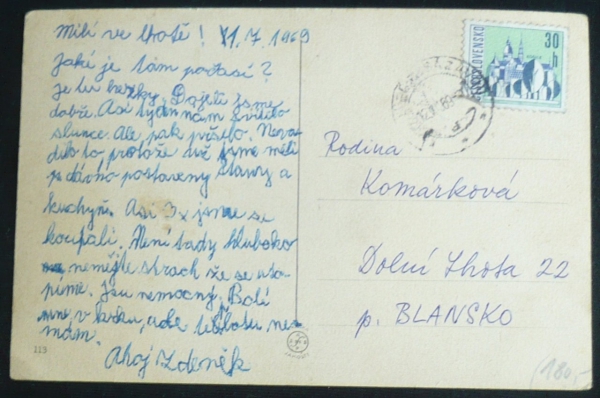 Milí ve Lhotě! 11.7.1969
Jaké je tam počasí?
Je tu hezky. Dojeli jsme
dobře. Asi týden nám svítilo
slunce. Ale pak pršelo. Neva-
dilo to protože už jsme měli
dávno postaveny stany a
kuchyň. Asi 3x jsme se
koupali. Není tady hluboko
nemějte strach že se uto-
píme. Jsu nemocný. Bolí
mne v krku, ale teplotu ne-
mám.
Ahoj Zdeněk
113
ČESKOSLOVENSKO
30
h
Rodina
Komárková
Dolní Lhota 22
p. BLANSKO
(180,-